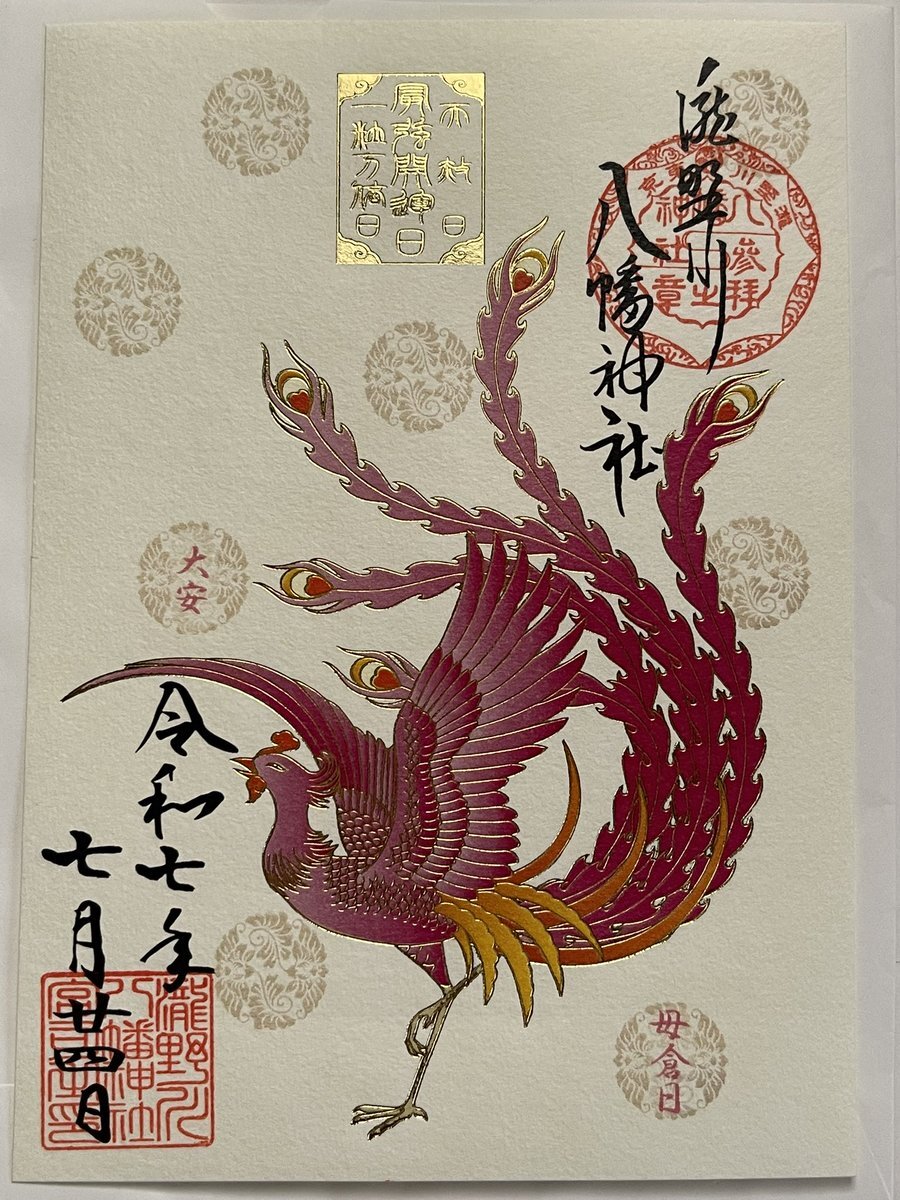 瀧野川
八幡神社
天赦日
最強開運日
一粒万倍日
大安
令和七年
七月廿四日
瀧野川
八幡神社
宮司之印
母倉日